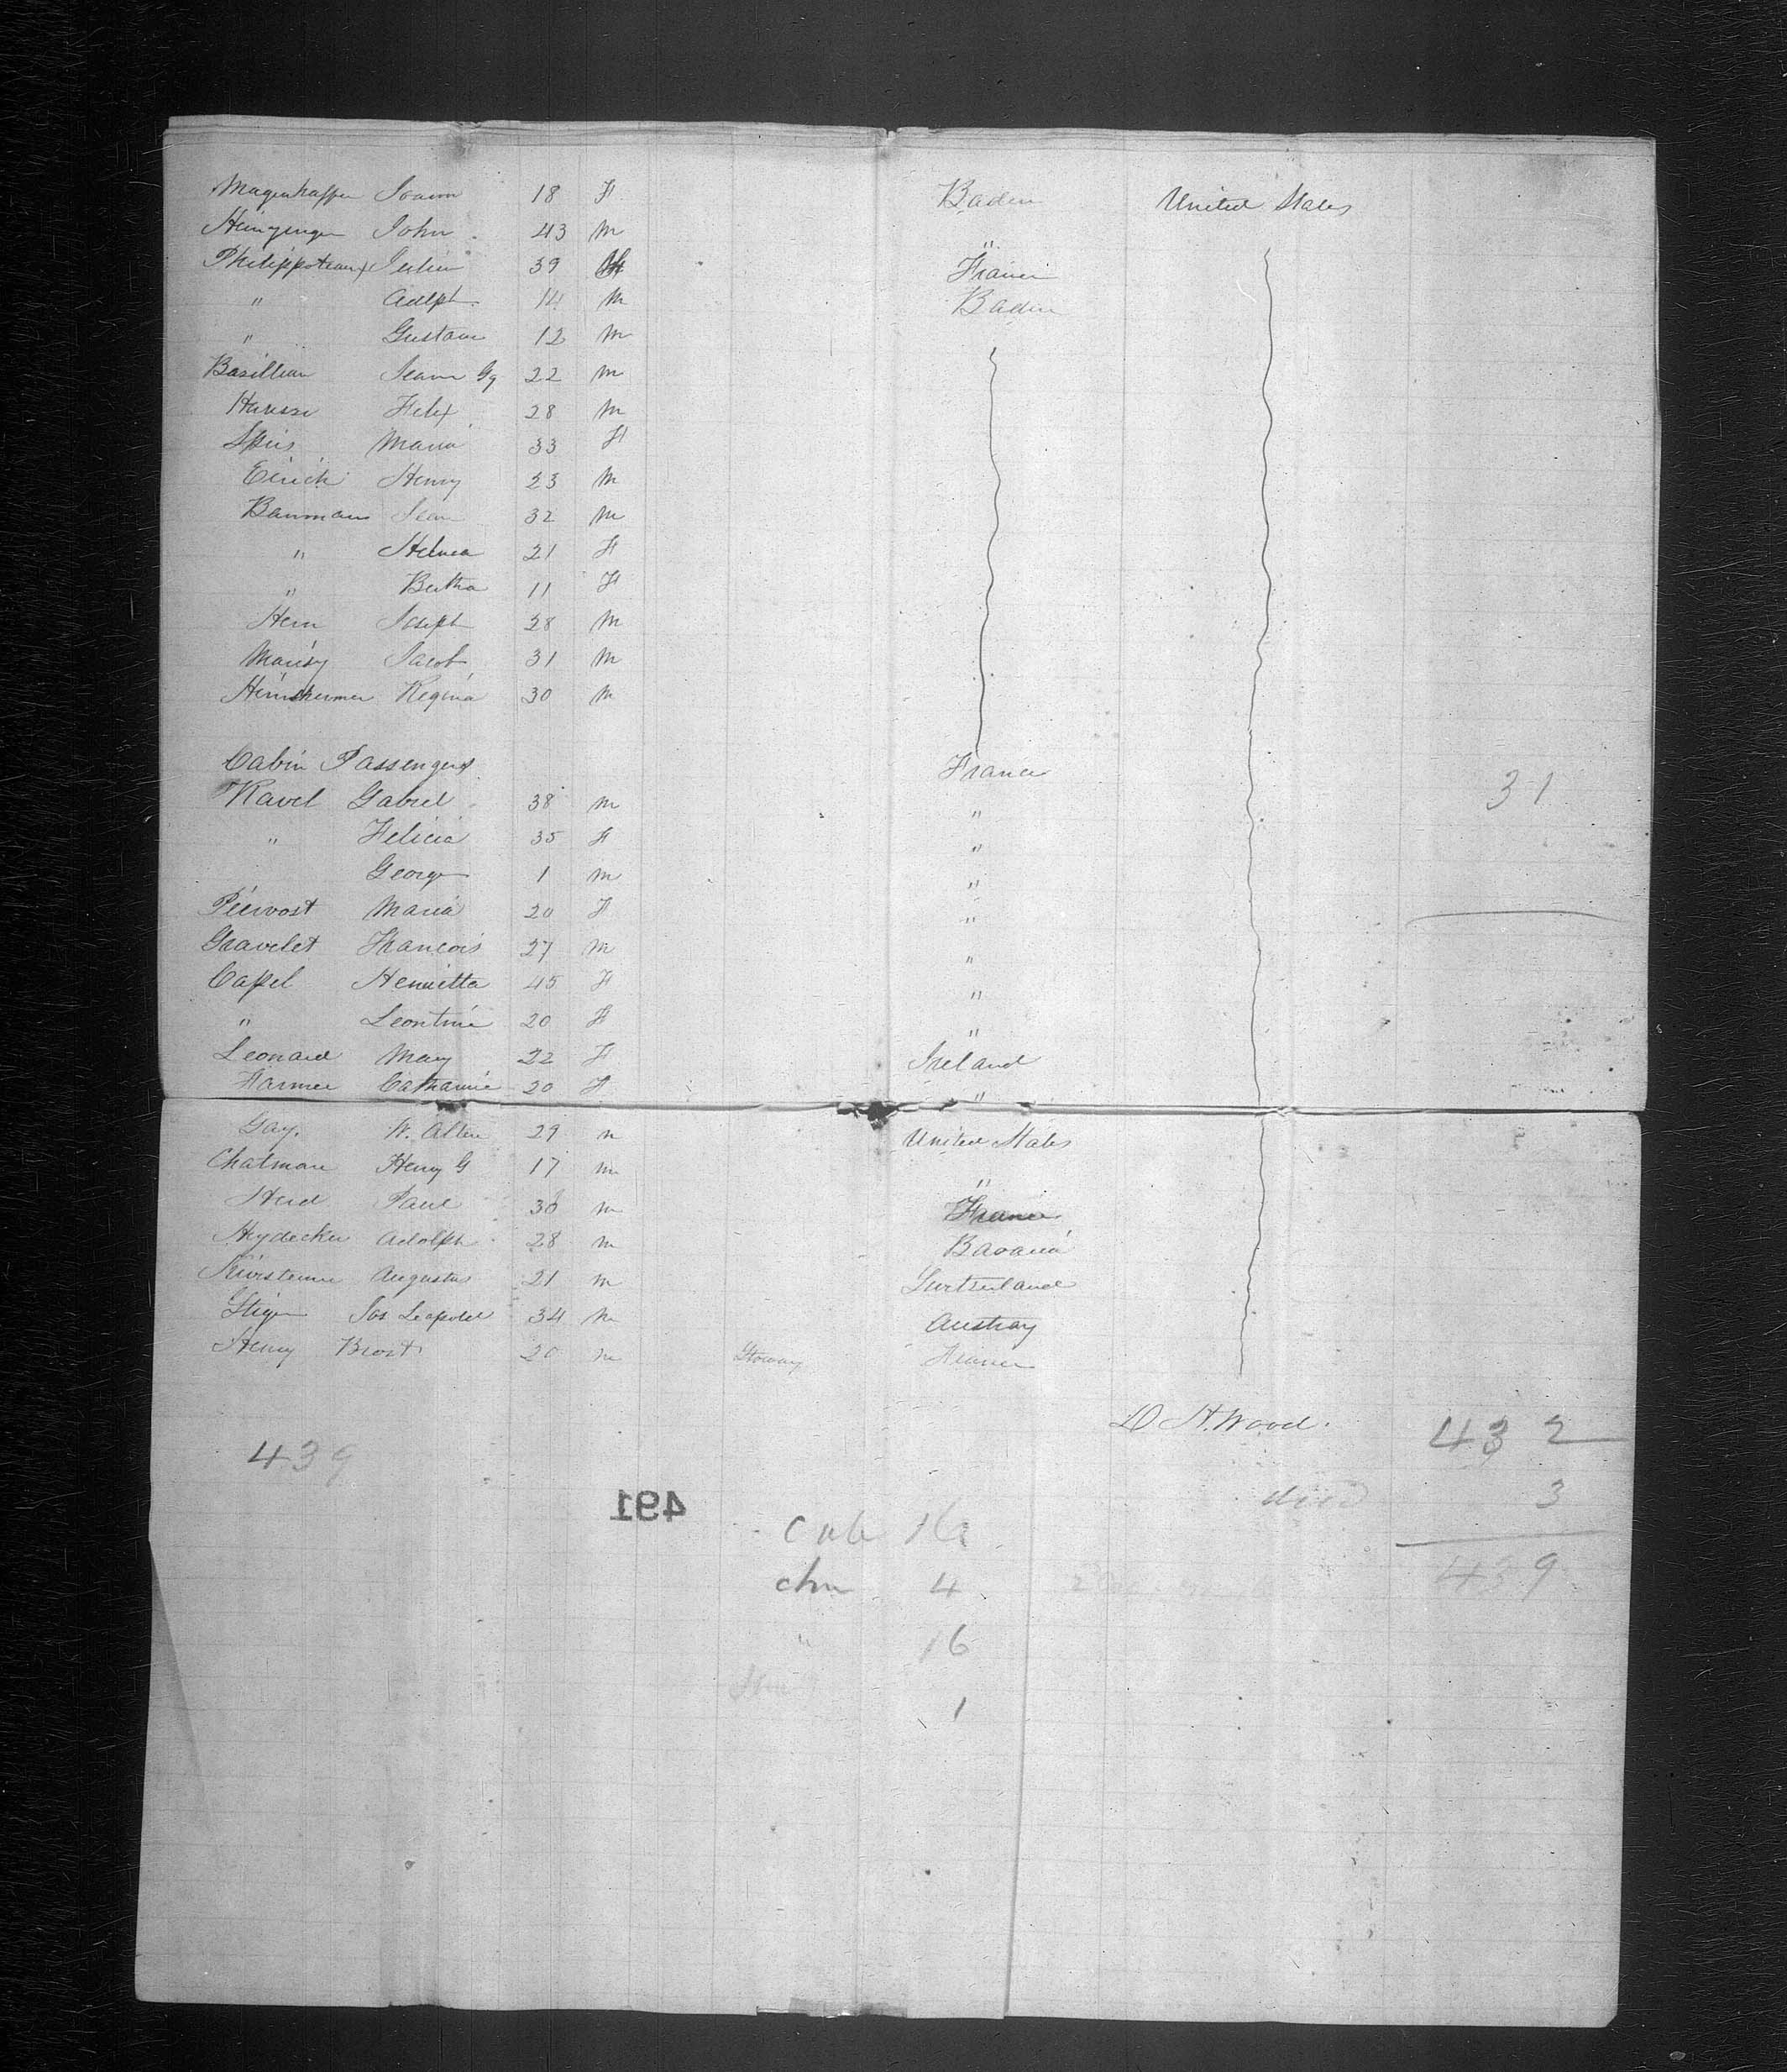 Magenhaffer 18 F Baden United States
John 43 M "
Philippoteaux Julien 39 France
" Adolph 14 M Baden
" Gustave 12 M
Basillian Jean Gg 22 M
Felix 28 M
Spies Maria 33 F
Eirich Henry 23 M
Bauman Jean 32 M
" Helena 21 F
" Bertha 11 F
Hern Joseph 28 M
Jacob 31 M
Heimshermer Regina 30 M
Cabin Passengers France
Ravel Gabriel 38 M " 31
" Felicia 35 F "
George 1 M "
Prevost Maria 20 F "
Gravelet Francois 27 M "
Capel Henrietta 45 F "
" Leontine 20 F "
Leonard Mary 22 F Ireland
Farmer Catharine 20 F "
Gay. W. Allen 29 M United States
Chatman Henry G 17 M "
Paul 30 M France
Hydecker Adolph 28 M Bavaria
Augustus 21 M Switzerland
Stiger Jos Leopold 34 M Austray
Henry Brost 20 M Stoway France
D H. Wood. 432
439
491 died 3
Cab 16
chn 4 439
" 16
1